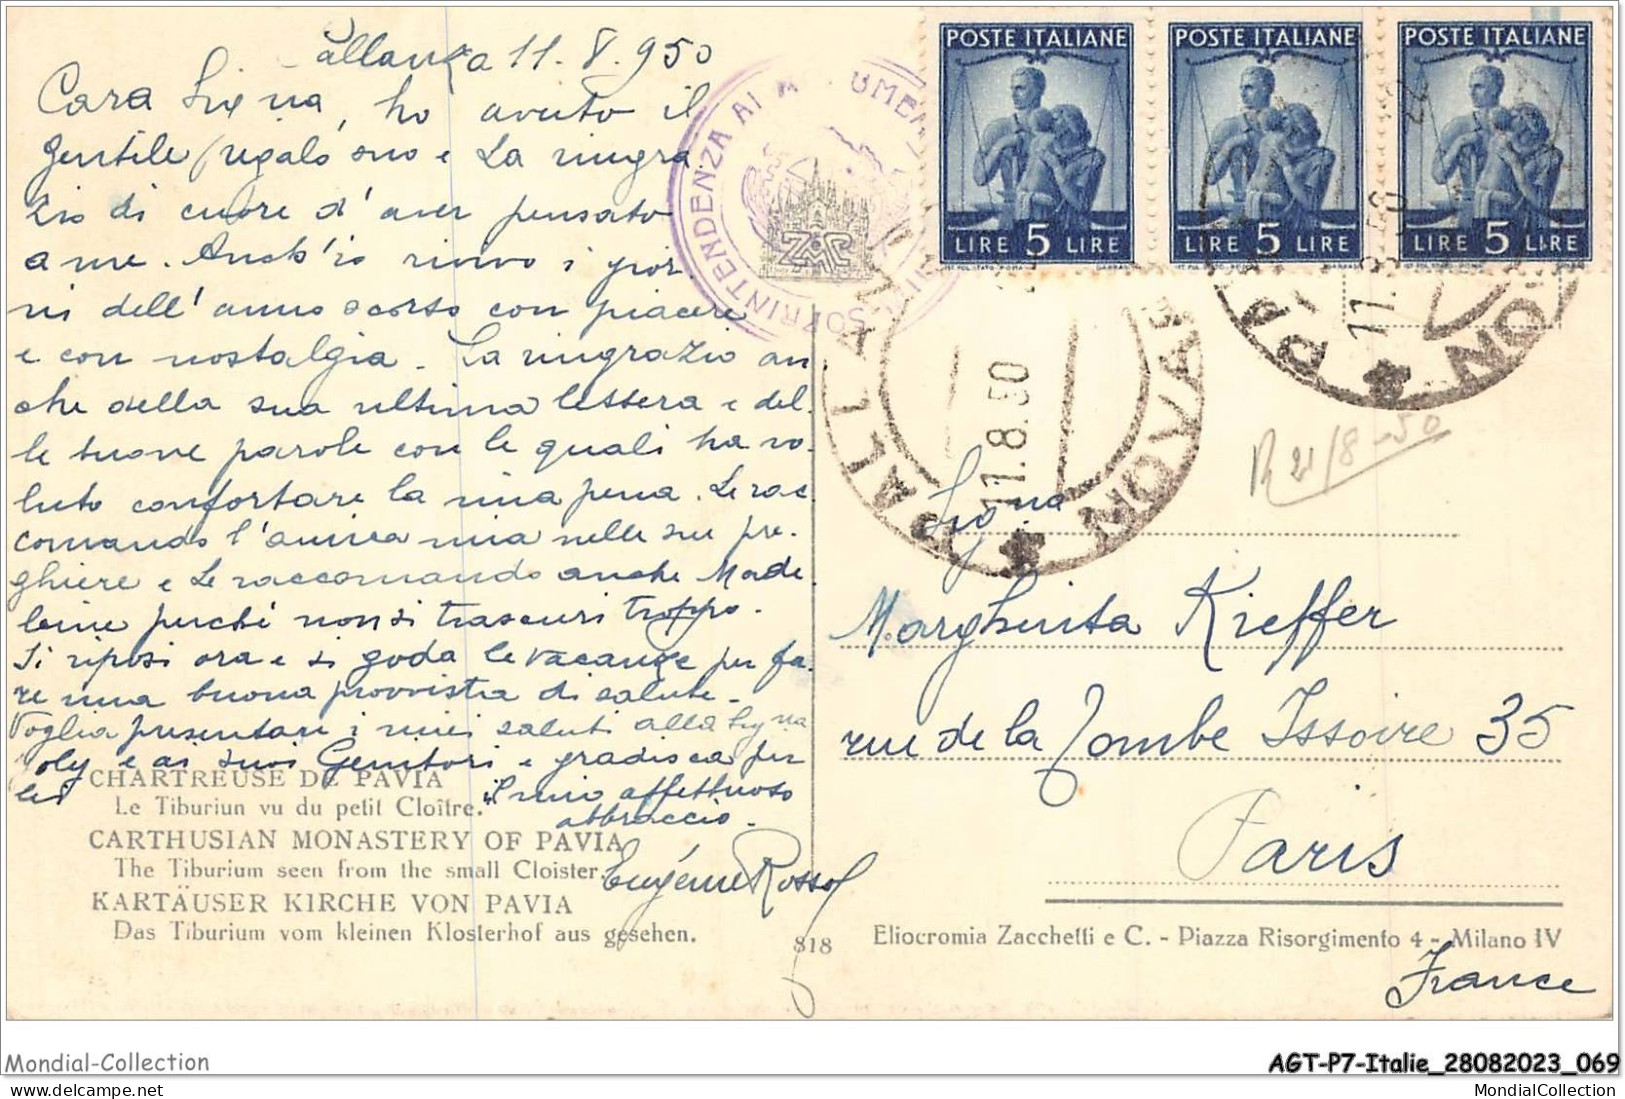 Pallanza 11.8.950
Cara Signa, ho avuto il
gentile regalo suo e La ringra
zio di cuore d'aver pensato
a me. Anch'io rivivo i gior
ni dell'anno scorso con piacere
e con nostalgia. La ringrazio an
che della sua ultima lettera e del
le buone parole con le quali ha vo-
luto confortare la mia pena. Le rac
comando l'anima mia nelle sue pre-
ghiere e Le raccomando anche Made
leine perchè non si trascuri troppo.
Si riposi ora e si goda le vacanze per fa-
re una buona provvista di salute.
Voglia presentare i miei saluti alla Signa
e ai suoi Genitori e gradisca per
lei il mio affettuoso
abbraccio.
CHARTREUSE DE PAVIA
Le Tiburiun vu du petit Cloître.
CARTHUSIAN MONASTERY OF PAVIA
The Tiburium seen from the small Cloister.
KARTÄUSER KIRCHE VON PAVIA
Das Tiburium vom kleinen Klosterhof aus gesehen.
818
SOPRINTENDENZA AI MONUMEN
POSTE ITALIANE
LIRE 5 LIRE
POSTE ITALIANE
LIRE 5 LIRE
POSTE ITALIANE
LIRE 5 LIRE
PALLANZA
NOVARA
11.8.50
R 21/8-50
Signa
Margherita Kieffer
rue de la Tombe Issoire 35
Paris
Eliocromia Zacchetti e C. - Piazza Risorgimento 4 - Milano IV
France
Mondial-Collection
AGT-P7-Italie_28082023_069
MondialCollection